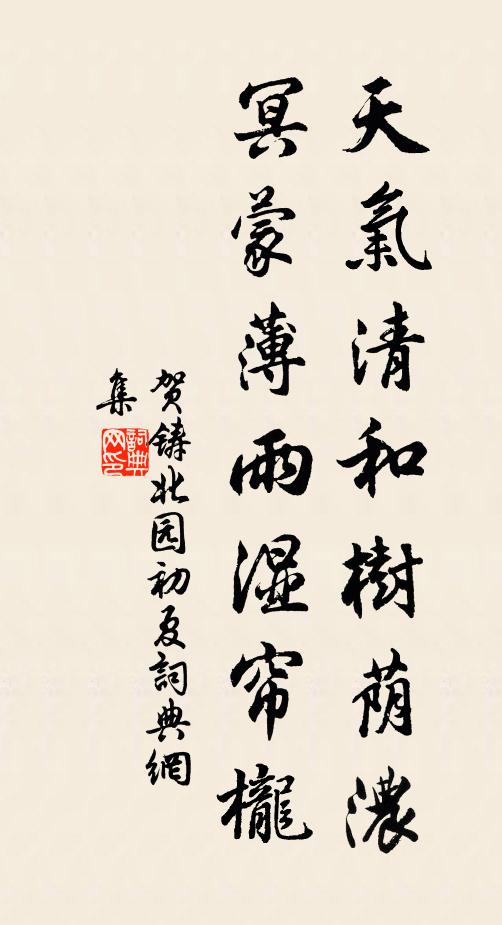 天氣清和樹荫濃
冥蒙薄雨湿帘櫳
贺鑄北园初夏詞典網
集
詞典网印